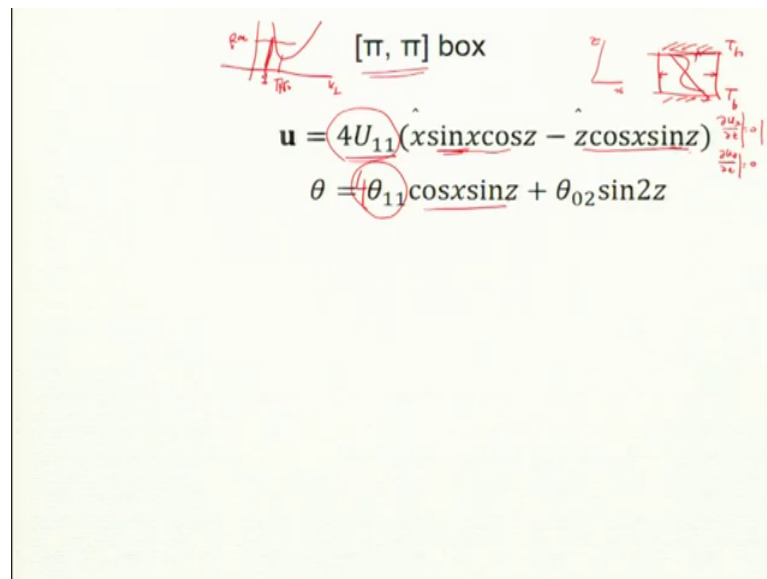 [π, π] box
u = 4U₁₁(x̂sinxcosz − ẑcosxsinz)
θ = 4θ₁₁cosxsinz + θ₀₂sin2z
z
x
T_b